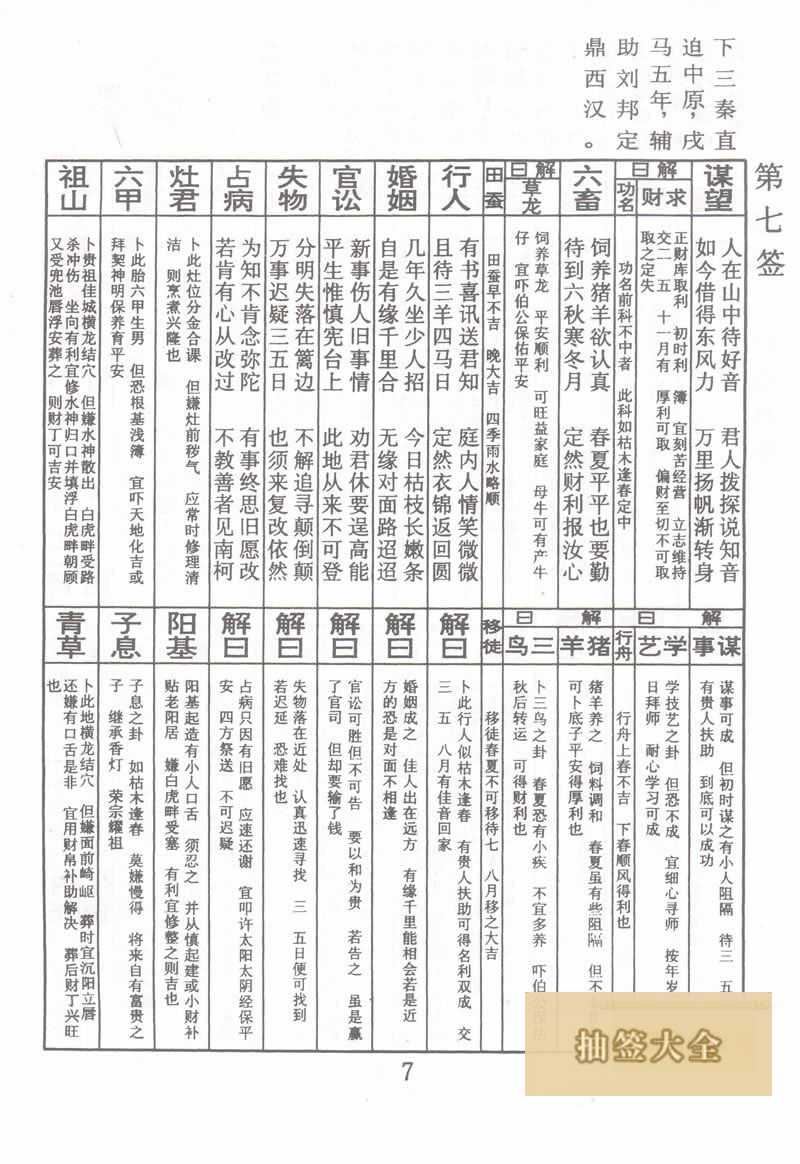 下三秦直
迫中原，戌
马五年，辅
助刘邦定
鼎西汉。
第七签
谋望
人在山中待好音　君人拨探说知音
如今借得东风力　万里扬帆渐转身
解曰
求财
正财库取利　初时利　簿　宜刻苦经营　立志维持
交二　五　十一月有　厚利可取　偏财至切不可取
取之定失
功名
功名前科不中者　此科如枯木逢春定中
六畜
饲养猪羊欲认真　春夏平平也要勤
待到六秋寒冬月　定然财利报汝心
解曰
草龙
饲养草龙　平安顺利　可旺益家庭　母牛可有产牛
仔　宜吓伯公保佑平安
田蚕
田蚕早不吉　晚大吉　四季雨水略顺
行人
有书喜讯送君知　庭内人情笑微微
且待三羊四马日　定然衣锦返回圆
婚姻
几年久坐少人招　今日枯枝长嫩条
自是有缘千里合　无缘对面路迢迢
官讼
新事伤人旧事情　劝君休要逞高能
平生惟慎宪台上　此地从来不可登
失物
分明失落在篱边　不解追寻颠倒颠
万事迟疑三五日　也须来复改依然
占病
为知不肯念弥陀　有事终思旧愿改
若肯有心从改过　不教善者见南柯
灶君
卜此灶位分金合课　但嫌灶前秽气　应常时修理清
洁　则烹煮兴隆也
六甲
卜此胎六甲生男　但恐根基浅簿　宜吓天地化吉或
拜契神明保养育平安
祖山
卜贵祖佳城横龙结穴　但嫌水神散出　白虎畔受路
杀冲伤　坐向有利宜修水神归口并填浮白虎畔朝顾
又受兜池唇浮安葬之　则财丁可吉安
解曰
谋事
谋事可成　但初时谋之有小人阻隔　待三　五
有贵人扶助　到底可以成功
学艺
学技艺之卦　但恐不成　宜细心寻师　按年岁
日拜师　耐心学习可成
行舟
行舟上春不吉　下春顺风得利也
解曰
猪羊
猪羊养之　饲料调和　春夏虽有些阻隔　但不
可卜底子平安得厚利也
三鸟
卜三鸟之卦　春夏恐有小疾　不宜多养　吓伯公
秋后转运　可得财利也
移徒
移徒春夏不可移待七　八月移之大吉
解曰
卜此行人似枯木逢春　有贵人扶助可得名利双成　交
三　五　八月有佳音回家
解曰
婚姻成之　佳人出在远方　有缘千里能相会若是近
方的恐是对面不相逢
解曰
官讼可胜但不可告　要以和为贵　若告之　虽是赢
了官司　但却要输了钱
解曰
失物落在近处　认真迅速寻找　三　五日便可找到
若迟延　恐难找也
解曰
占病只因有旧愿　应速还谢　宜叩许太阳太阴经保平
安　四方祭送　不可迟疑
阳基
阳基起造有小人口舌　须忍之　并从慎起建或小财补
贴老阳居　嫌白虎畔受塞　有利宜修整之则吉也
子息
子息之卦　如枯木逢春　莫嫌慢得　将来自有富贵之
子　继承香灯　荣宗耀祖
青草
卜此地横龙结穴　但嫌面前崎岖　葬时宜沉阳立唇
还嫌有口舌是非　宜用财帛补助解决　葬后财丁兴旺
也
7
抽签大全